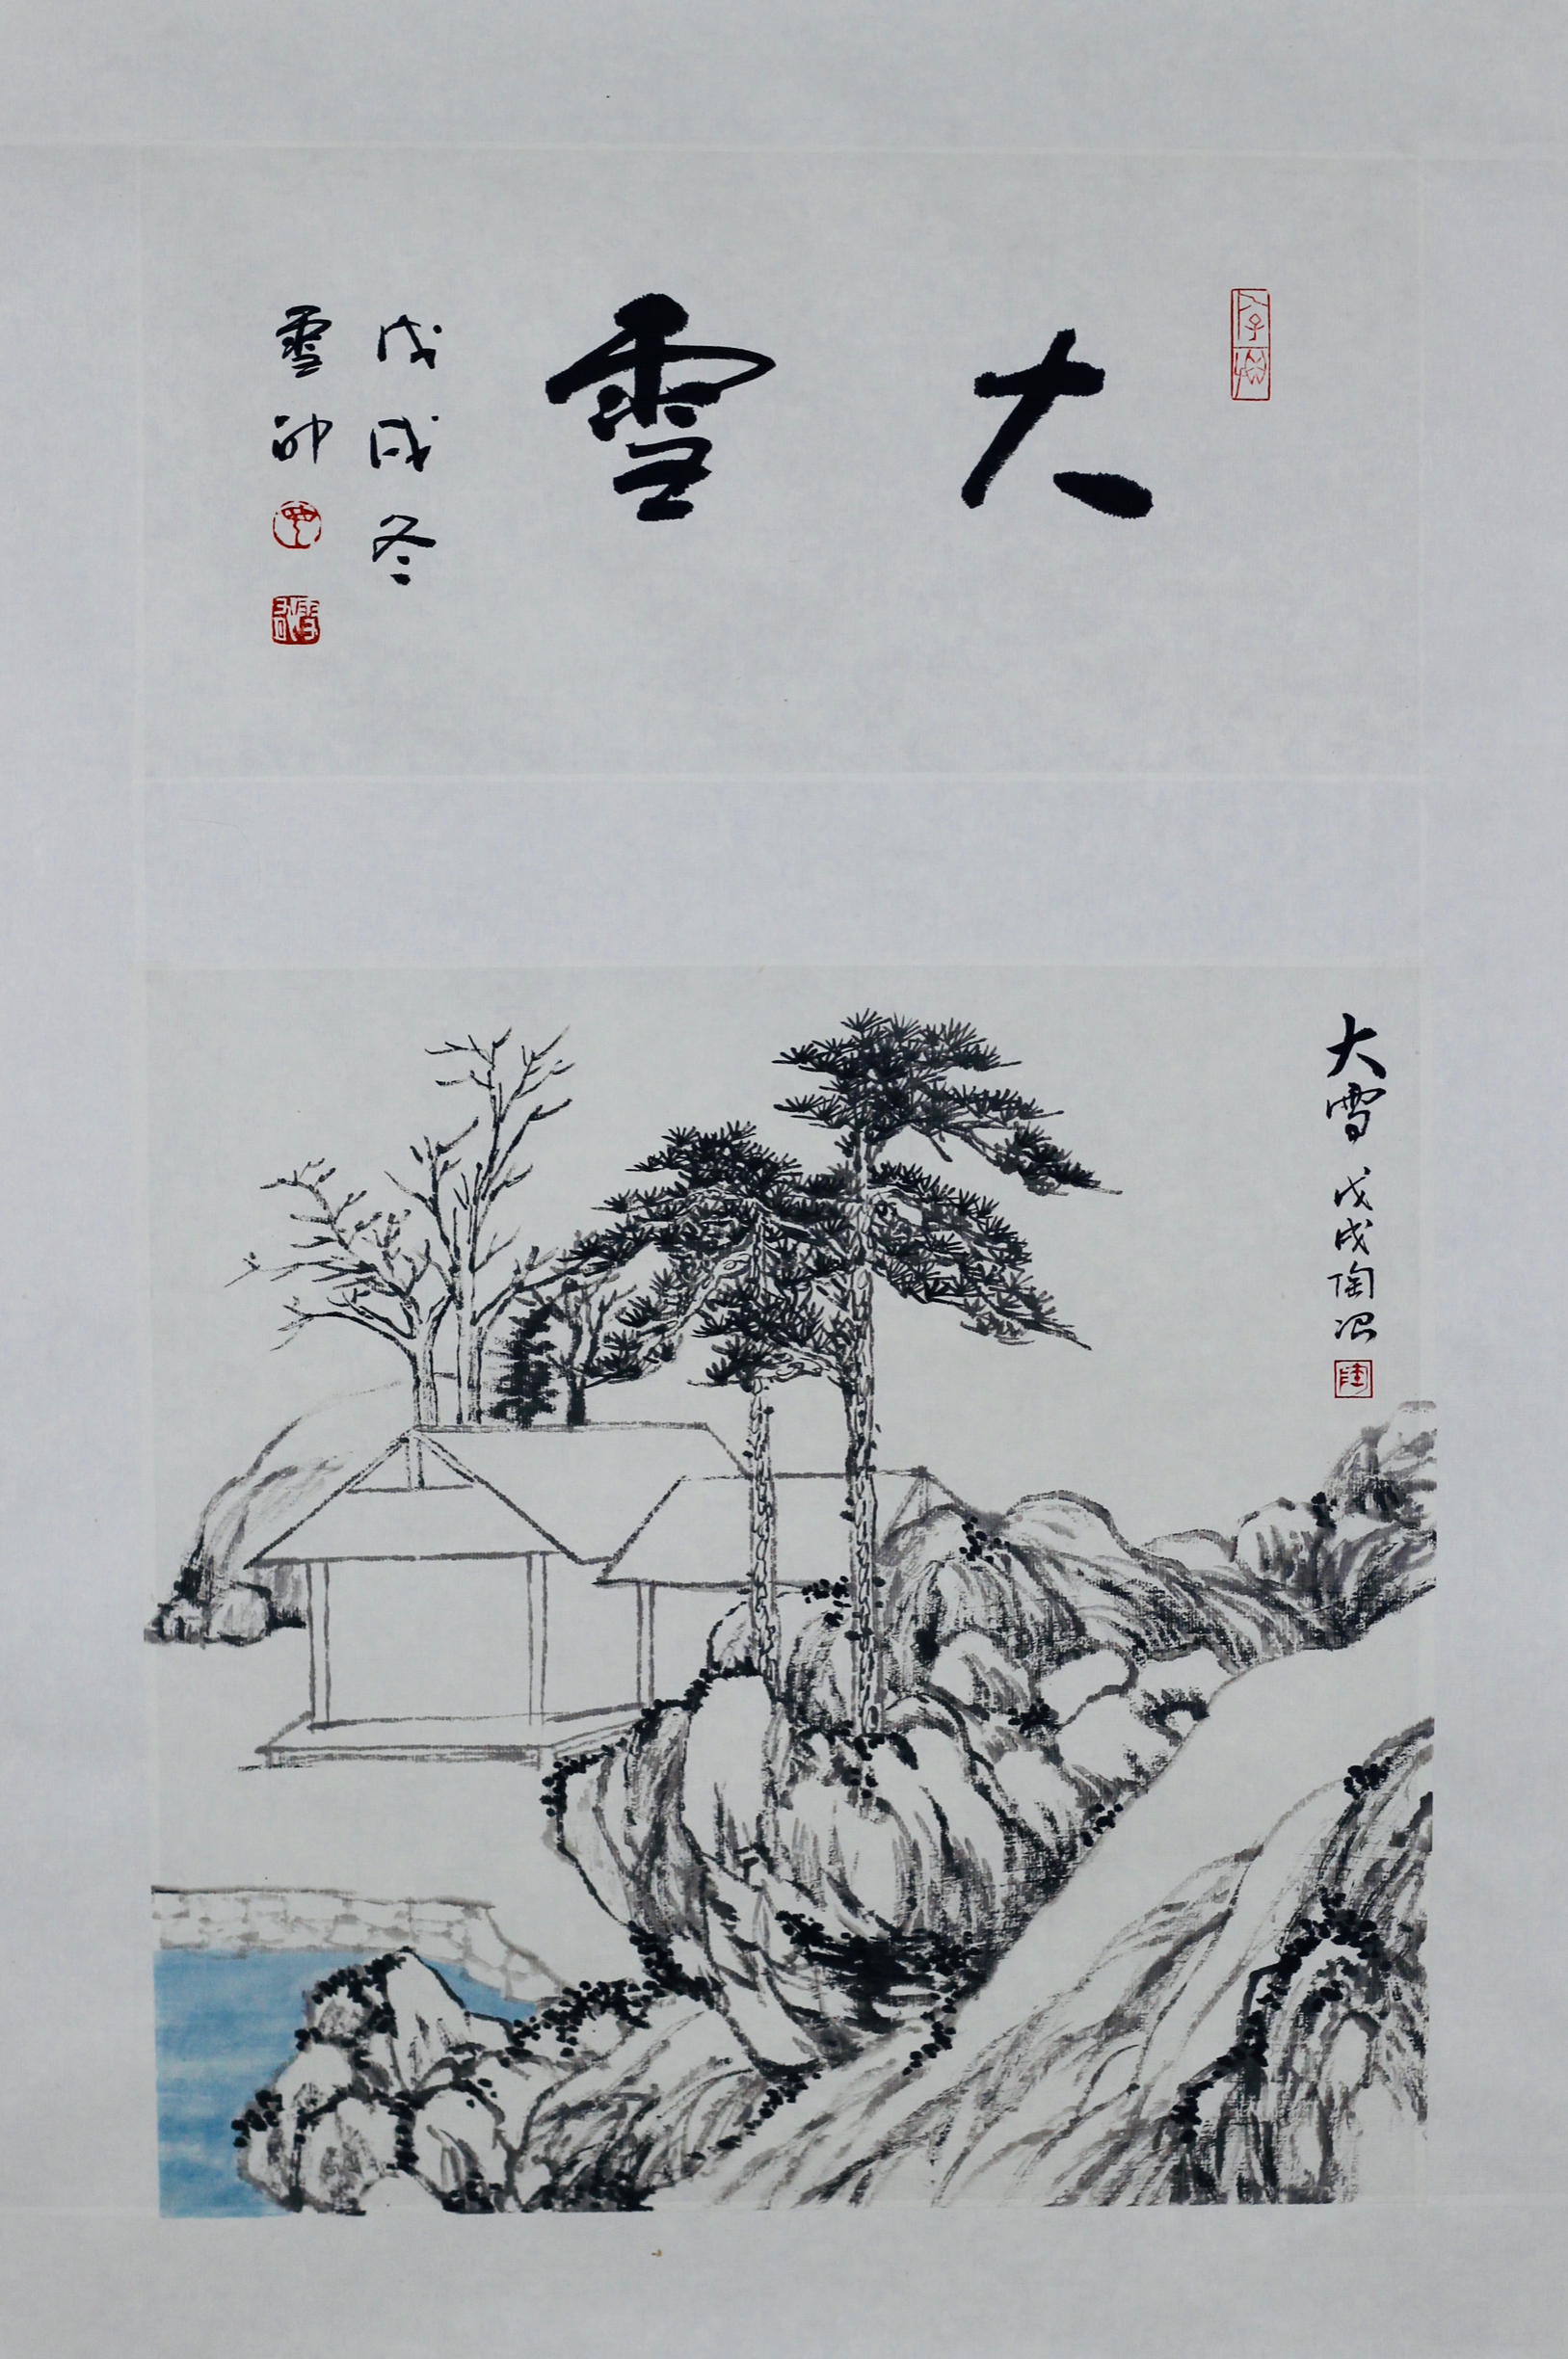 大雪
戊戌冬
雪
大雪 戊戌陶